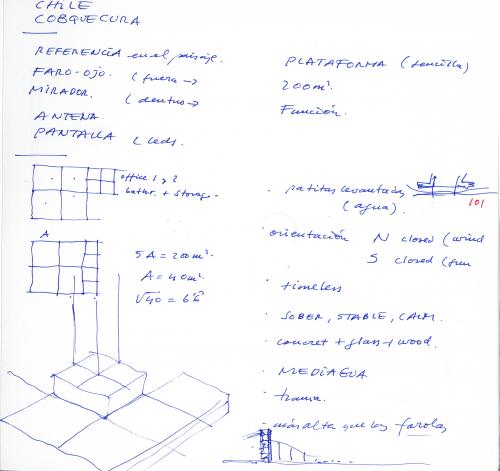 CHILE
COBQUECURA
REFERENCIA en el paisaje.
FARO-OJO. (fuera →
MIRADOR. (dentro →
ANTENA
PANTALLA (leds.
office 1 y 2
bathr. + storage.
A
5A = 200m².
A = 40m².
√40 = 6'6
PLATAFORMA (sencilla)
200m².
Función.
· patitas levantadas
(agua).
101
· orientación N closed (wind
S closed (sun
· timeless
· SOBER, STABLE, CALM.
· concret + glass + wood.
· MEDIAGUA
· trama.
· más alta que las farolas